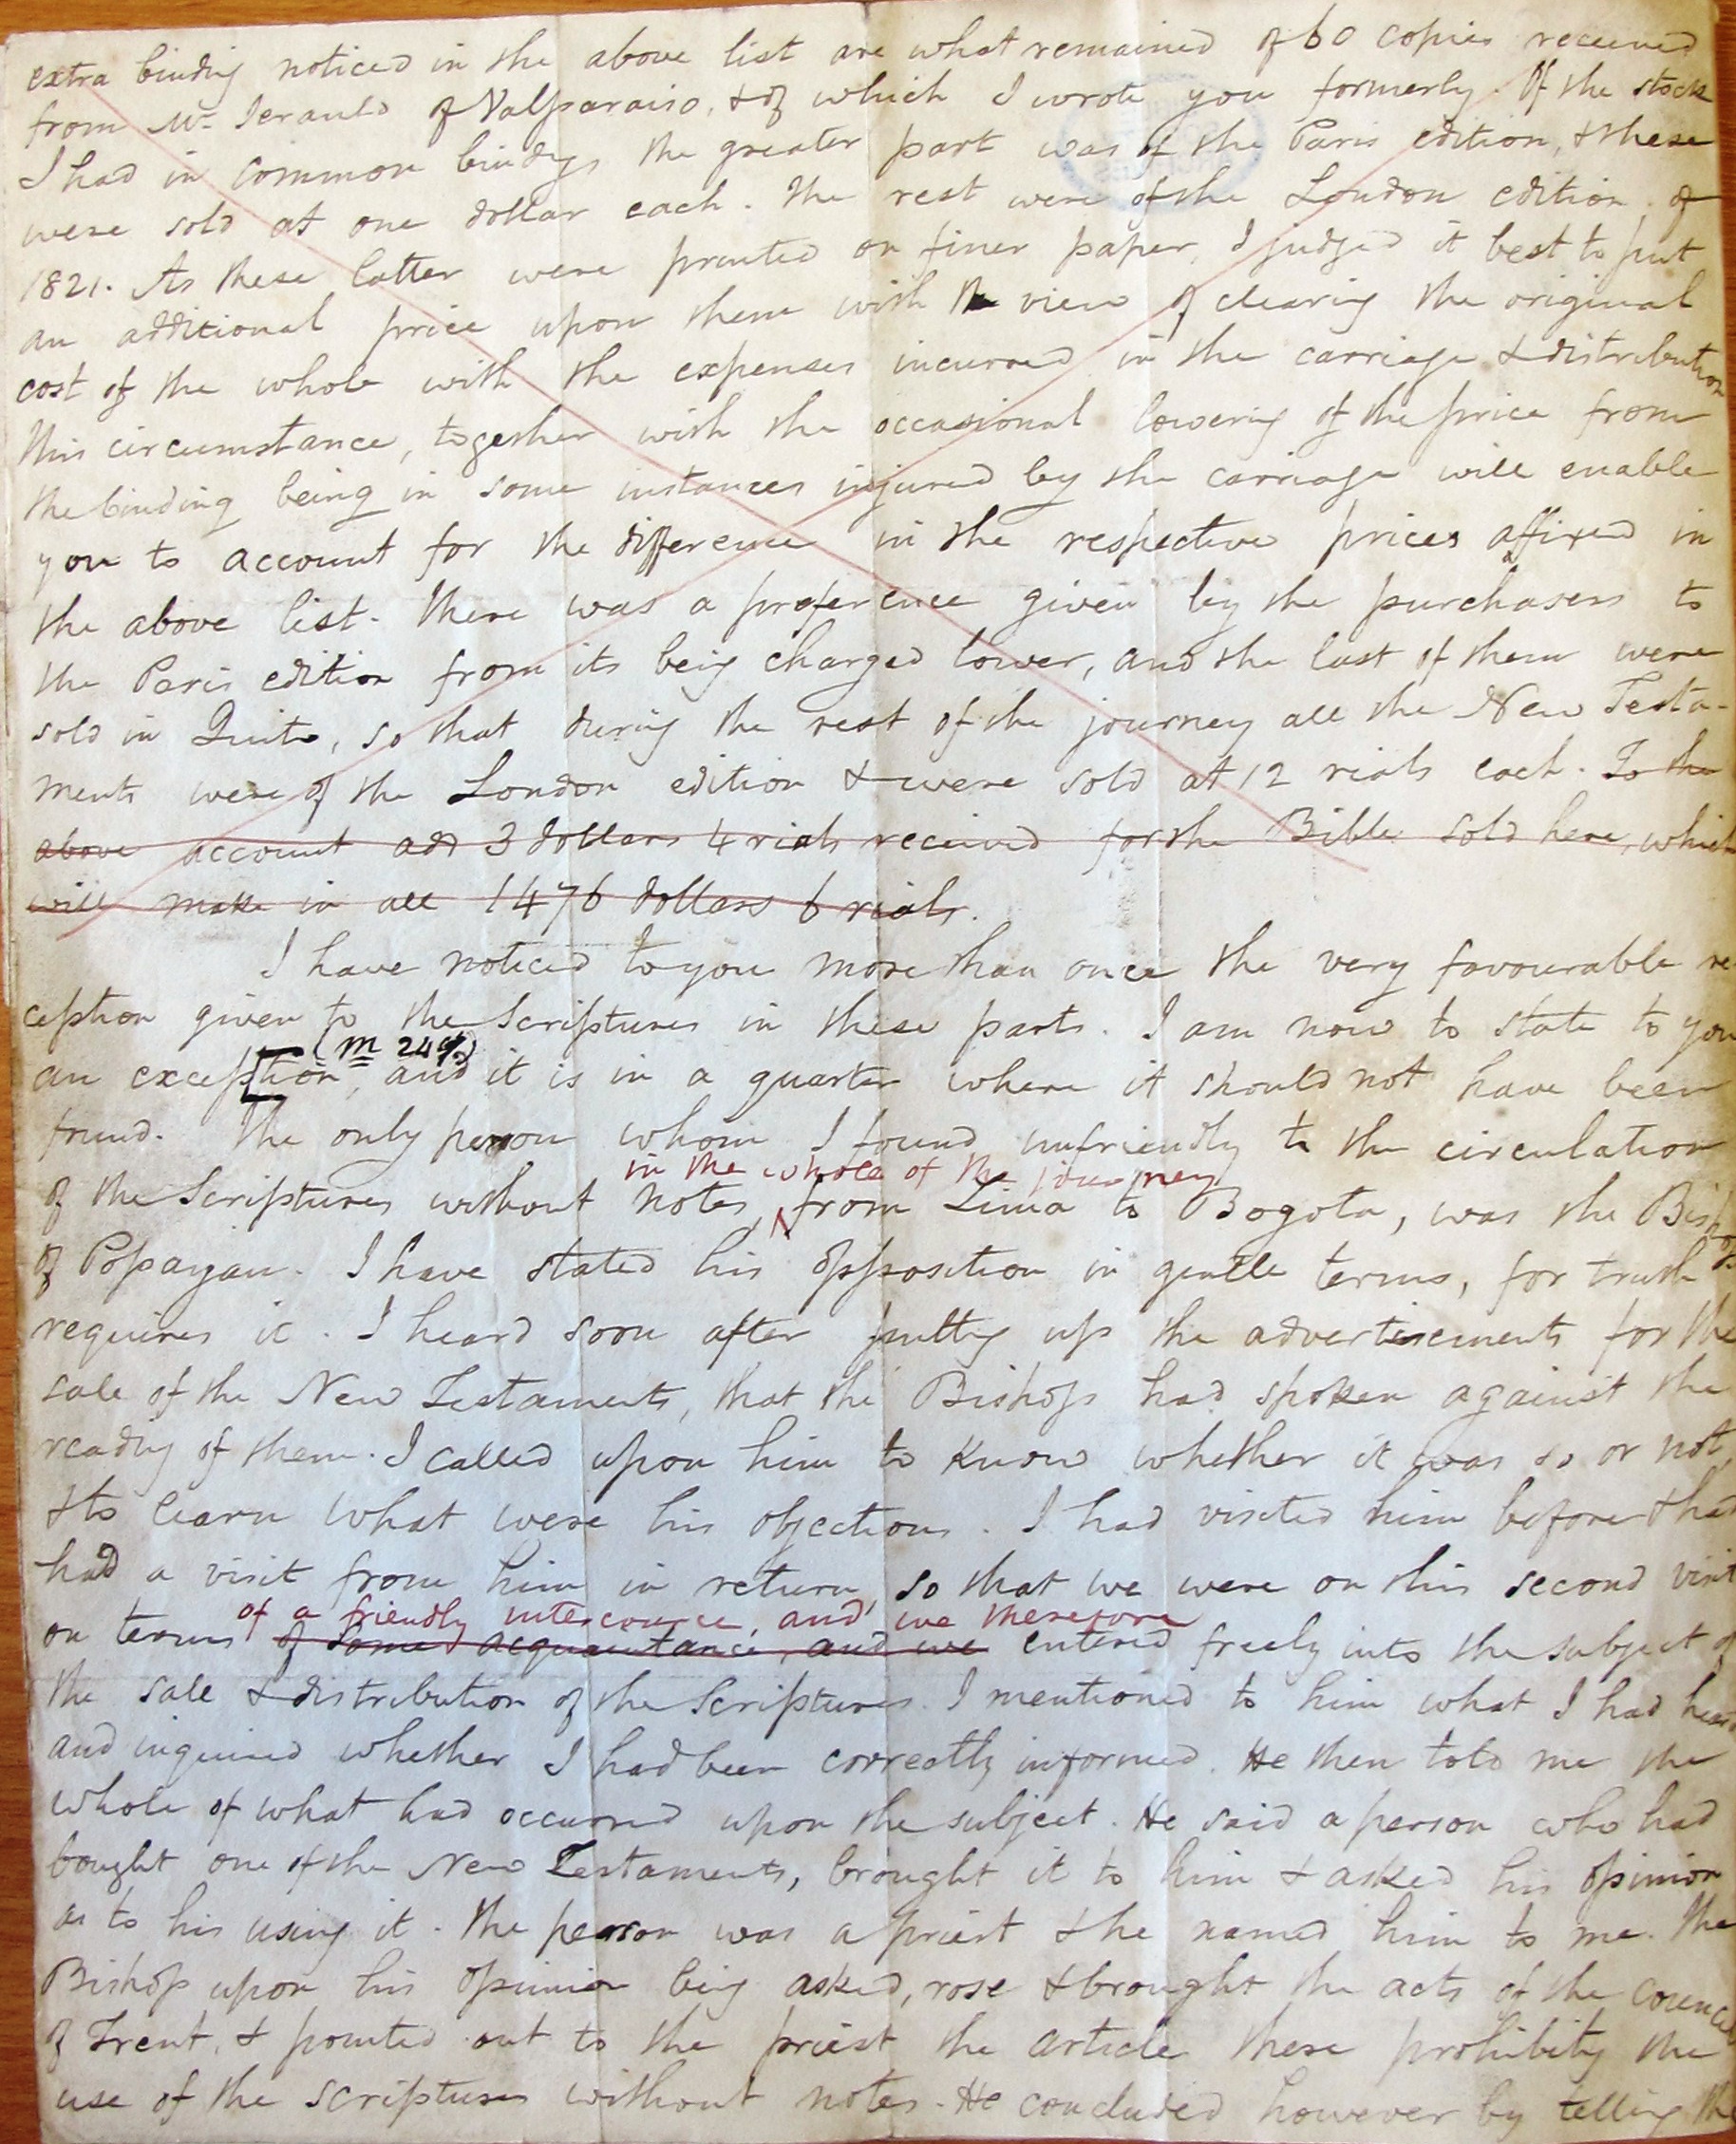 extra binding noticed in the above list are what remained of 60 copies received
from Mr. Serauld of Valparaiso, & of which I wrote you formerly. Of the stock
I had in common bindings the greater part was of the Paris edition, & these
were sold at one dollar each. The rest were of the London edition of
1821. As these latter were printed on finer paper, I judged it best to put
an additional price upon them with the view of clearing the original
cost of the whole with the expenses incurred in the carriage & distribution
This circumstance, together with the occasional lowering of the price from
the binding being in some instances injured by the carriage will enable
you to account for the difference in the respective prices affixed in
the above list. There was a preference given by the purchasers to
the Paris edition from its being charged lower, and the last of them were
sold in Quito, so that during the rest of the journey all the New Testa-
ments were of the London edition & were sold at 12 rials each. To the
above account add 3 dollars 4 rials received for the Bible sold here, which
will make in all 1476 dollars 6 rials.
I have noticed to you more than once the very favourable re
ception given to the Scriptures in these parts. I am now to state to you
(m 249)
an exception, and it is in a quarter where it should not have been
found. The only person whom I found unfriendly to the circulation
in the whole of the journey
of the Scriptures without notes, from Lima to Bogota, was the Bishop
of Popayan. I have stated his opposition in gentle terms, for truth
requires it. I heard soon after putting up the advertisements for the
sale of the New Testaments, that the Bishop had spoken against the
reading of them. I called upon him to know whether it was so or not,
& to learn what were his objections. I had visited him before & had
had a visit from him in return, so that we were on this second visit
of a friendly intercourse, and we therefore
on terms of some acquaintance, and we entered freely into the subject of
the sale & distribution of the Scriptures. I mentioned to him what I had heard
and inquired whether I had been correctly informed. He then told me the
whole of what had occurred upon the subject. He said a person who had
bought one of the New Testaments, brought it to him & asked his opinion
as to his using it. The person was a priest & he named him to me. The
Bishop upon his opinion being asked, rose & brought the acts of the Council
of Trent, & pointed out to the priest the article there prohibiting the
use of the scriptures without notes. He concluded however by telling the